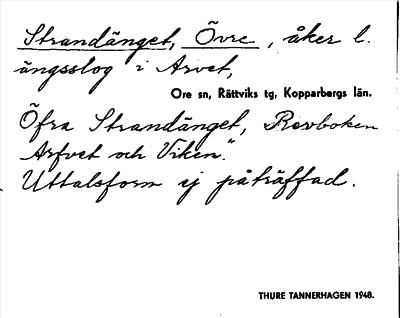 Strandänget, Övre, åker l.
ängsslog i Arvet,
Ore sn, Rättviks tg, Kopparbergs län.
Öfra Strandänget, Revboken
Arfvet och Viken."
Uttalsform ej påträffad.
THURE TANNERHAGEN 1948.